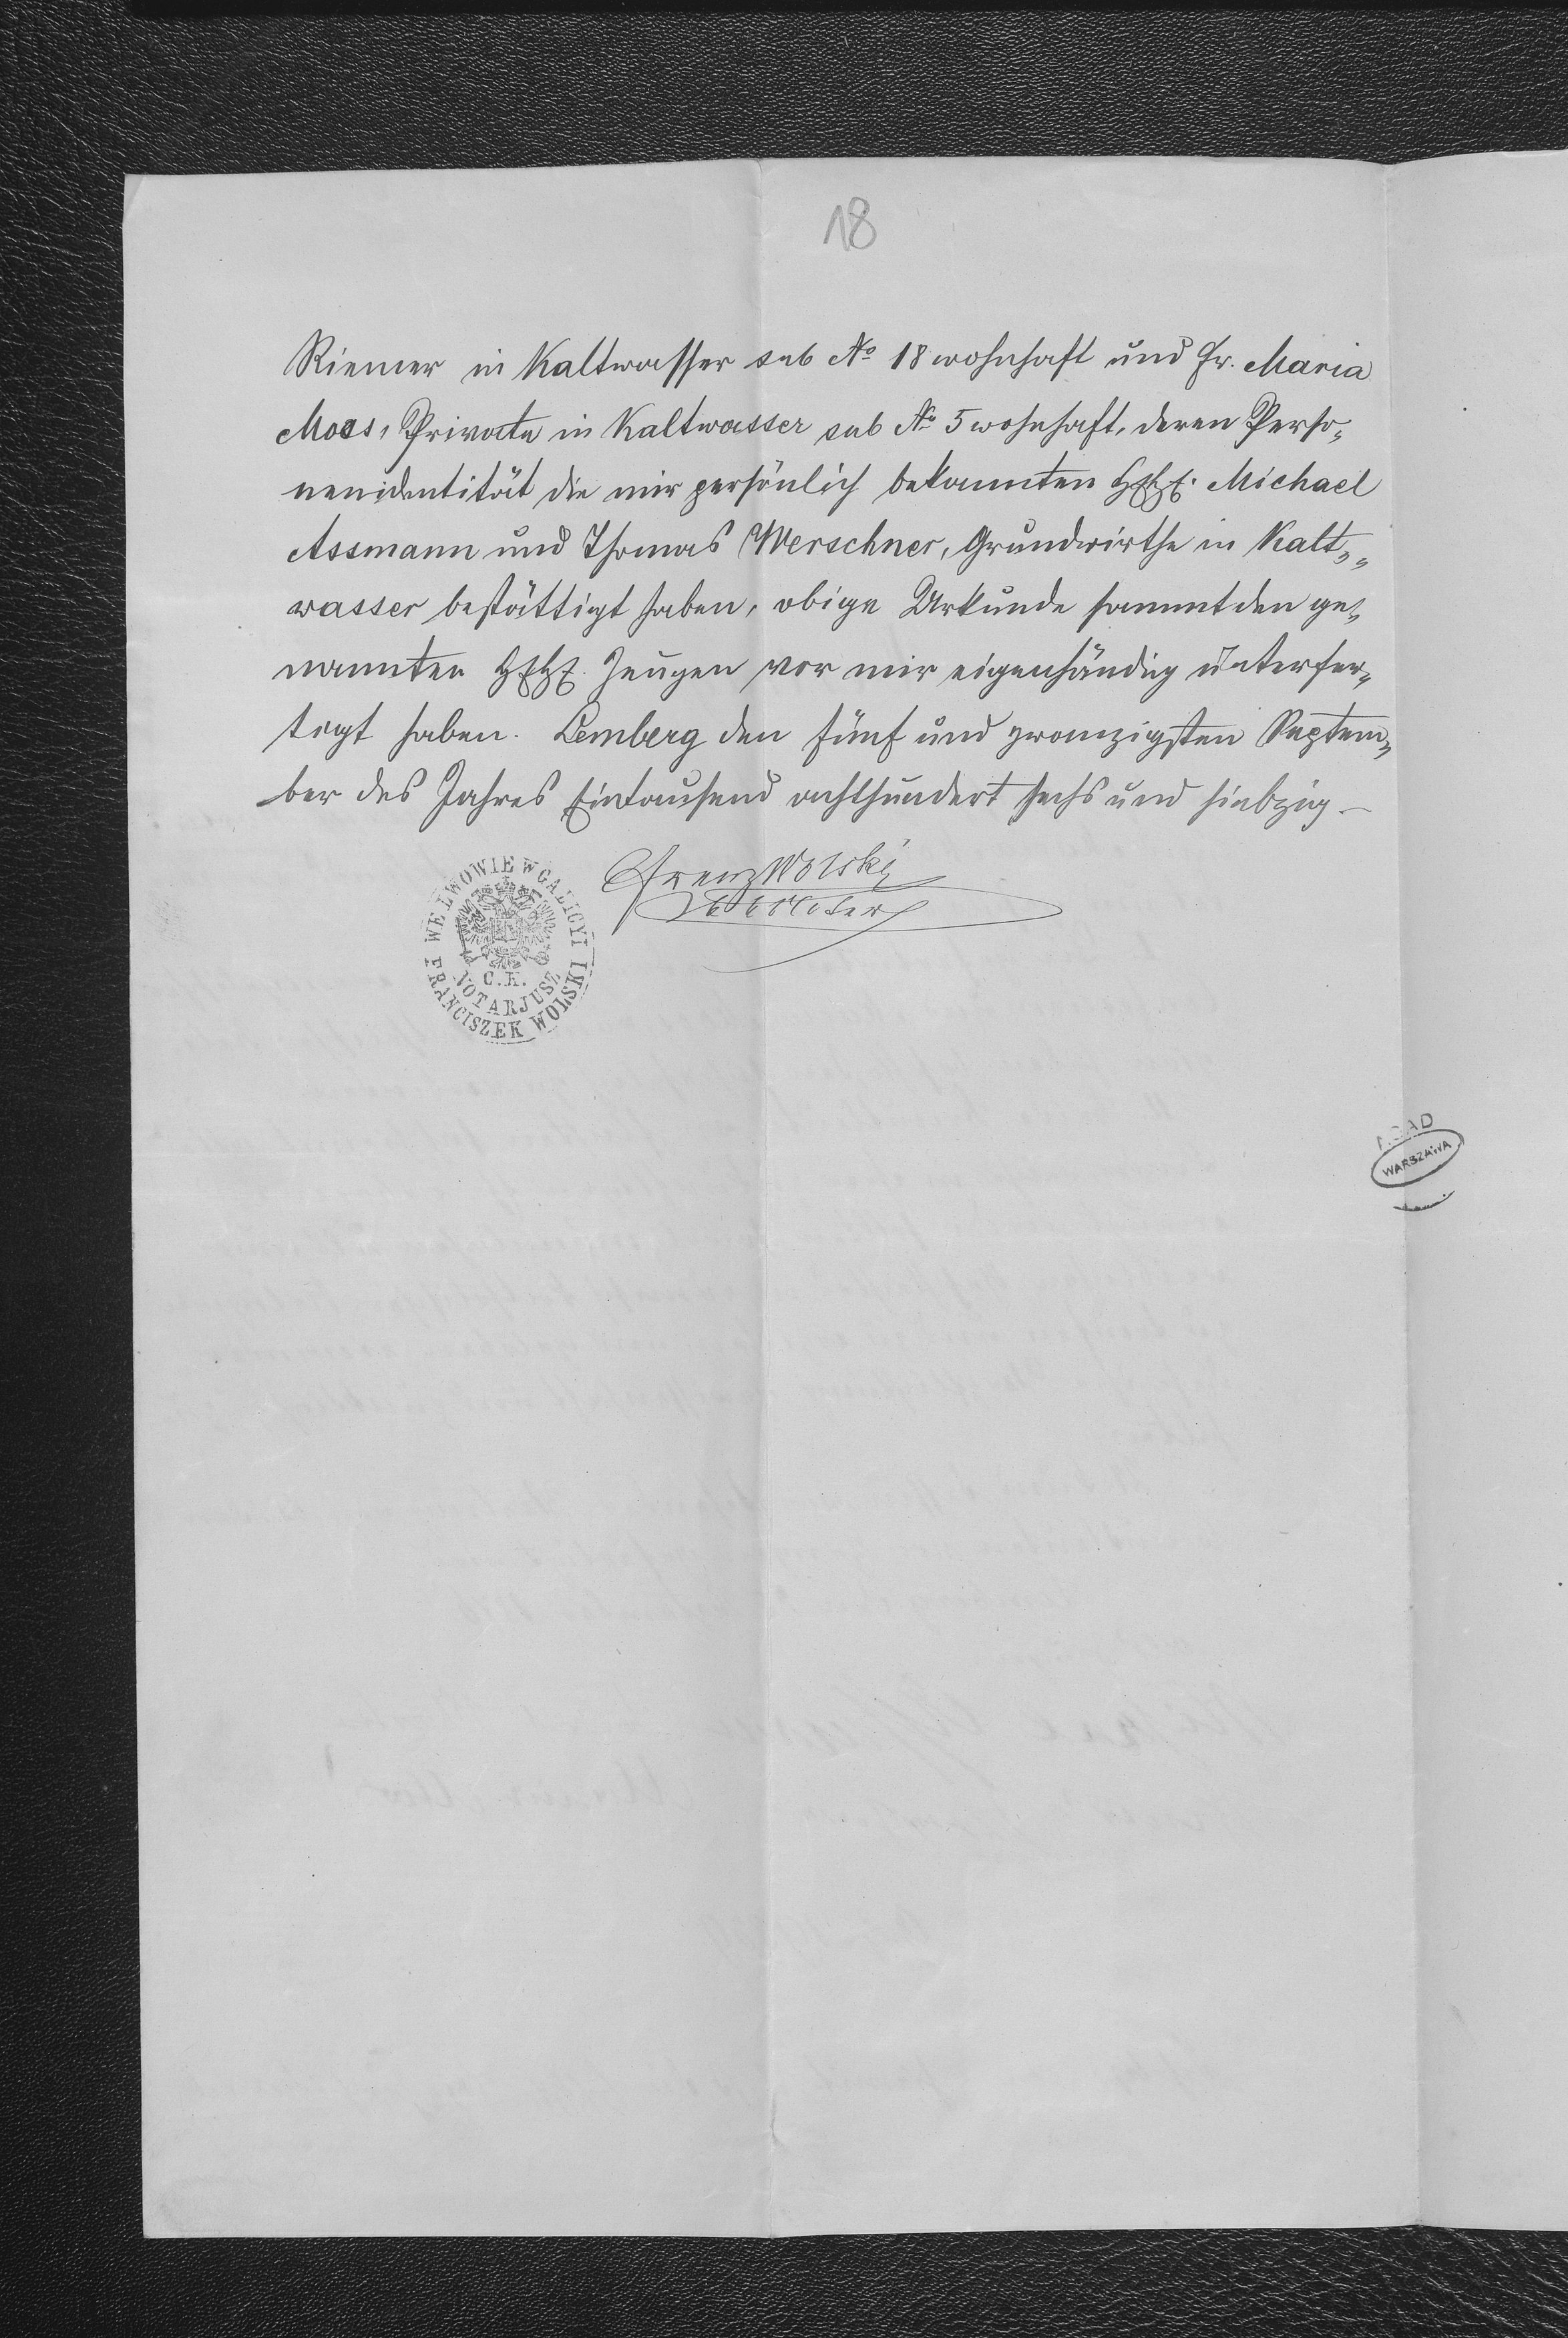 18
Riemer in Kaltwasser sub No 18 wohnhaft und Fr. Maria
Moos, Private in Kaltwasser sub No 5 wohnhaft, deren Perso-
nenidentität die mir persönlich bekannten HH. Michael
Assmann und Thomas Werschner, Grundwirthe in Kalt-
wasser bestättigt haben, obige Urkunde sammt den ge-
nannten HH. Zeugen vor mir eigenhändig unterfer-
tigt haben. Lemberg den fünf und zwanzigsten Septem-
ber des Jahres Eintausend achthundert sechs und siebzig –
Franz Wolski
kk Notar
WE LWOWIE W GALICYI
C. K.
NOTARJUSZ
FRANCISZEK WOLSKI
AGAD
WARSZAWA